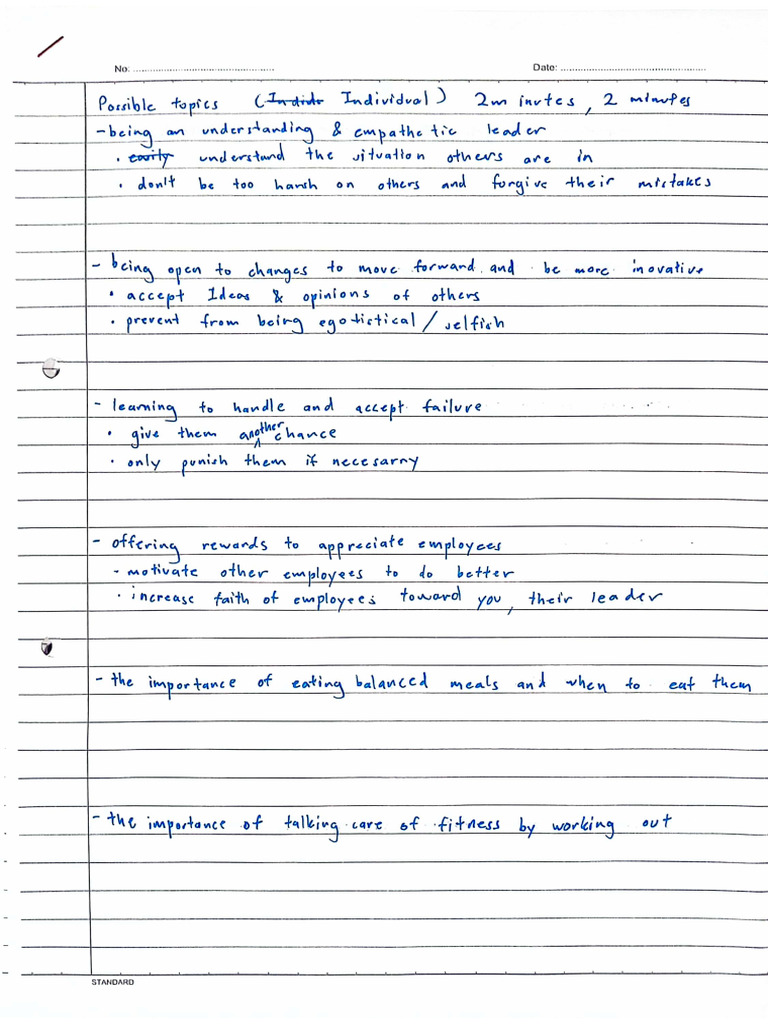 No: Date:
Possible topics (Indido Individual) 2m inutes, 2 minutes
- being an understanding & empathetic leader
• easily understand the situation others are in
• don't be too harsh on others and forgive their mistakes
- being open to changes to move forward and be more inovative
• accept Ideas & opinions of others
• prevent from being egotistical / selfish
- learning to handle and accept failure
• give them another chance
• only punish them if necesarry
- offering rewards to appreciate employees
- motivate other employees to do better
• increase faith of employees toward you, their leader
- the importance of eating balanced meals and when to eat them
- the importance of talking care of fitness by working out
STANDARD